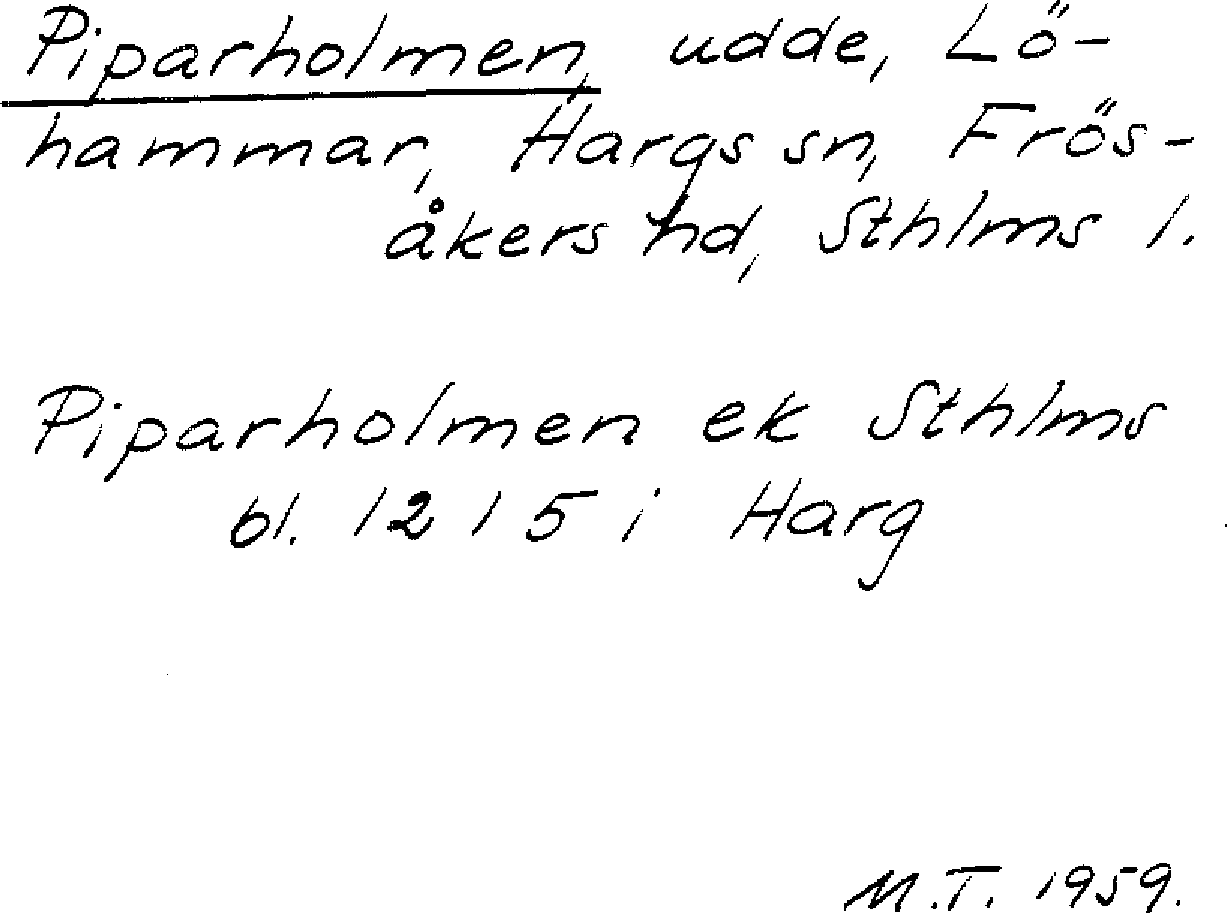 Piparholmen, udde, Lö-
hammar, Hargs sn, Frös-
åkers hd, Sthlms l.
Piparholmen ek Sthlms
bl. 12 1 5 i Harg
M.T. 1959.